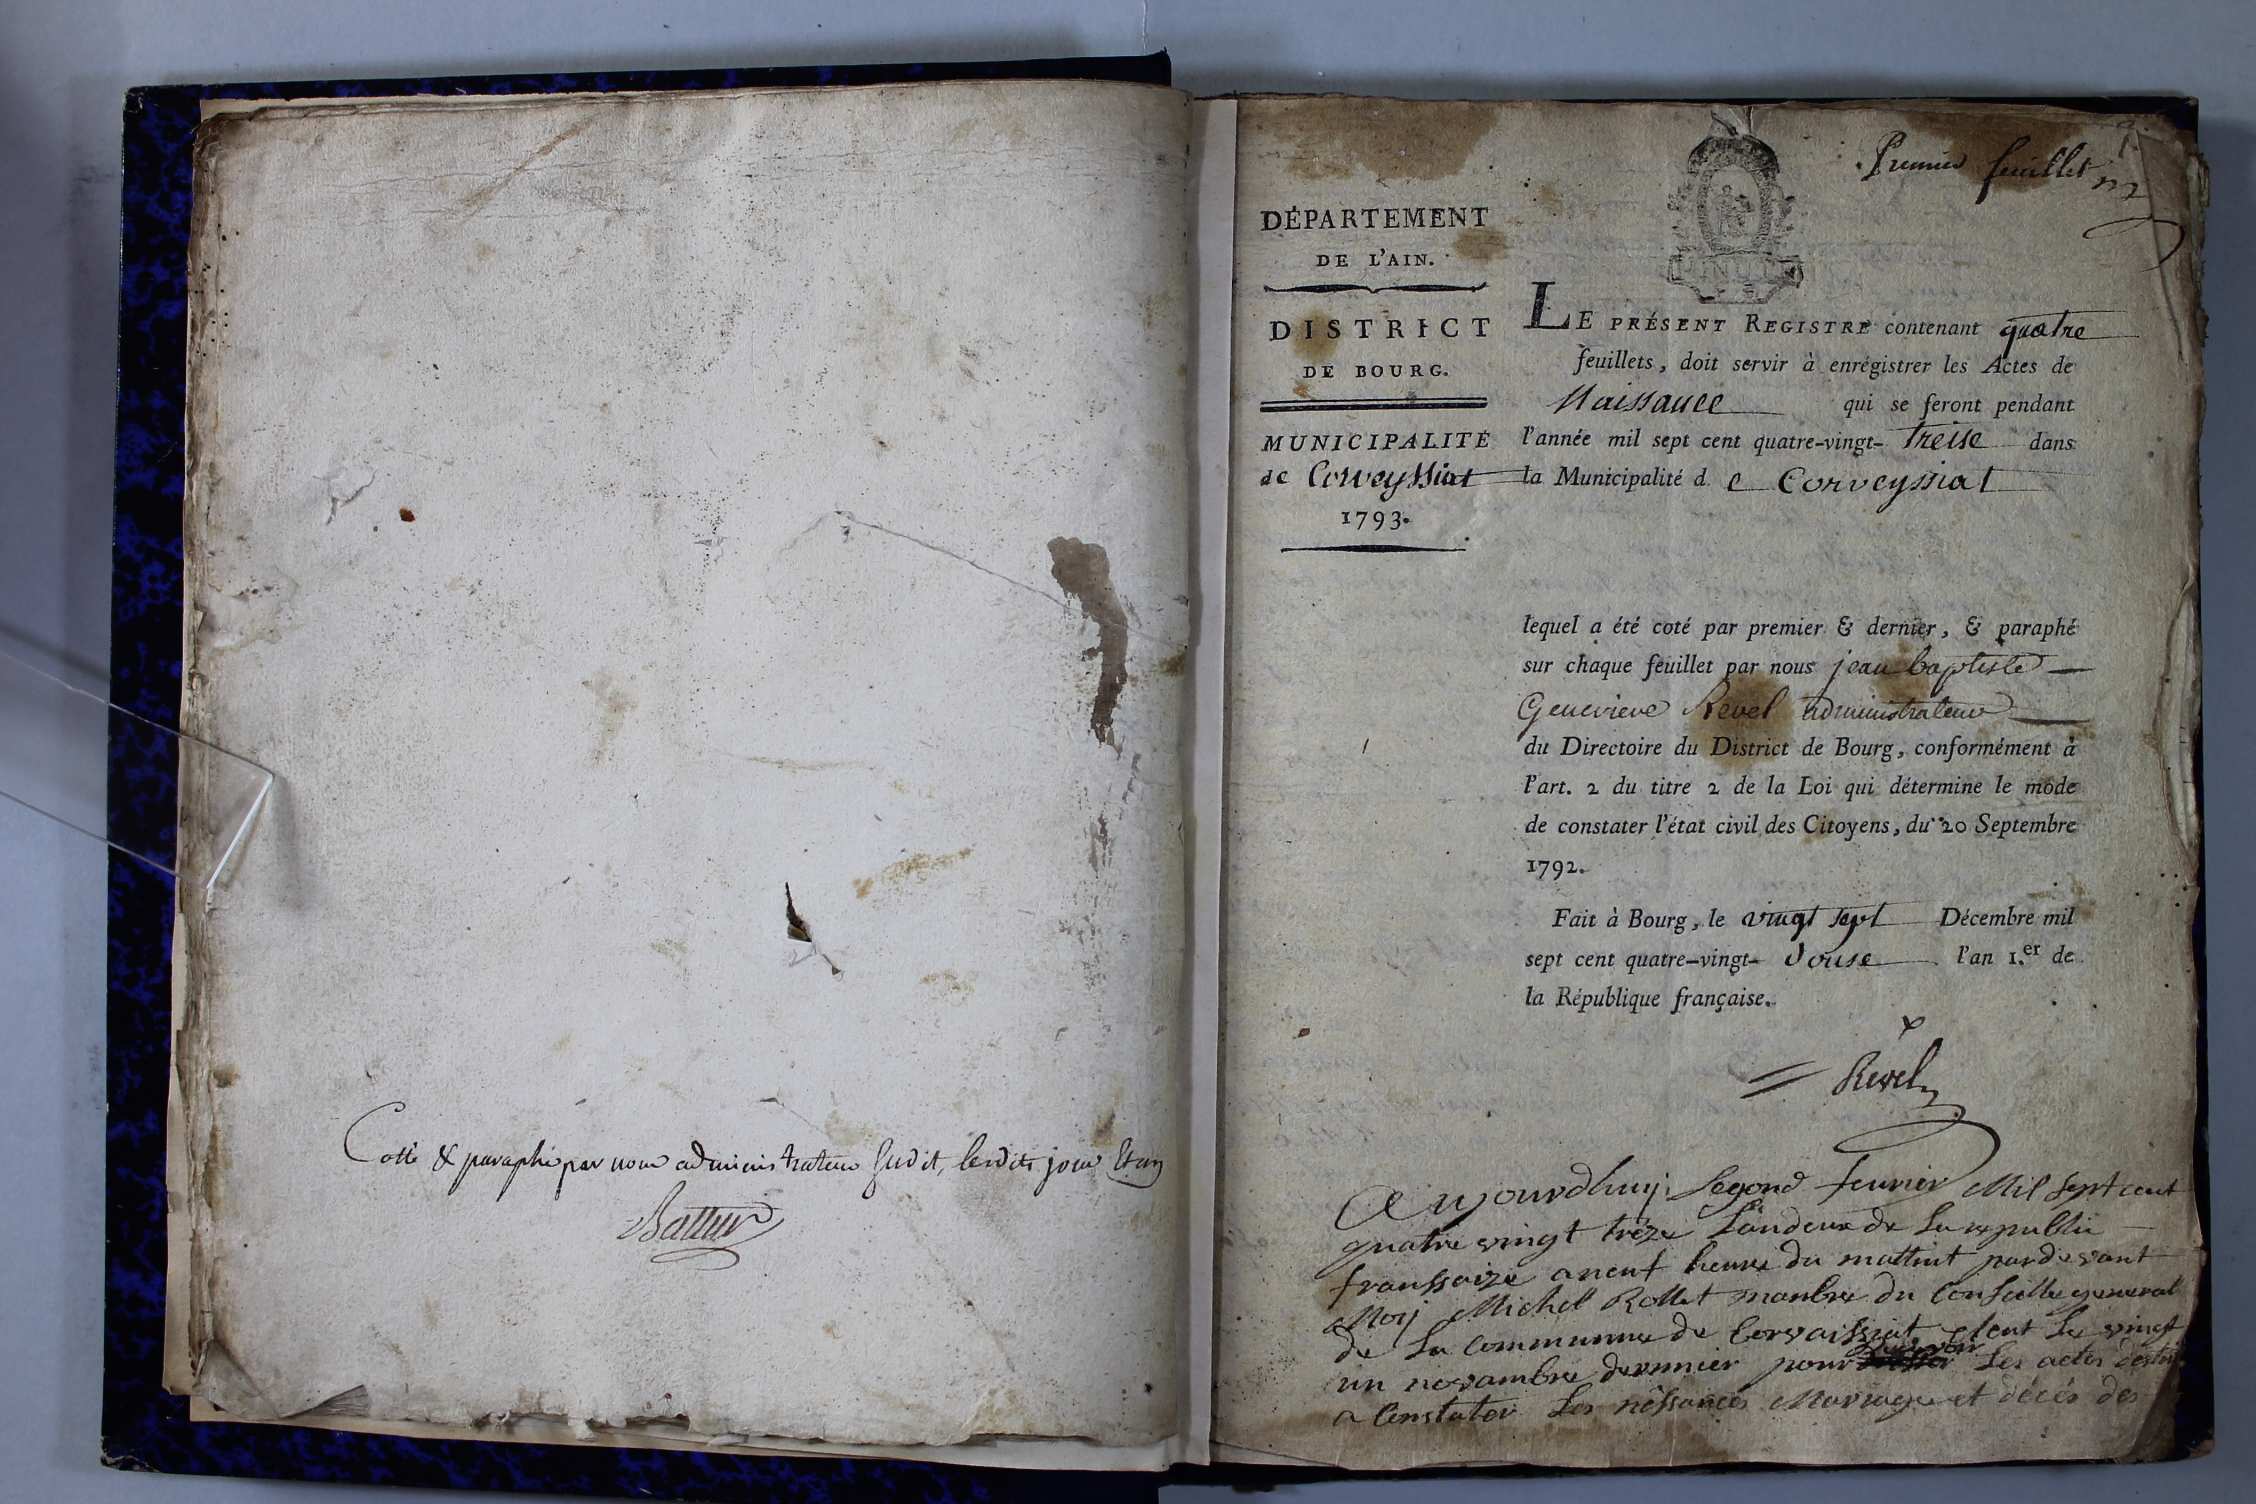 Cotté & paraphé par nous administrateur susdit, lesdits jour et an
Battur
Premier feuillet
DÉPARTEMENT
DE L'AIN.
DISTRICT
DE BOURG.
MUNICIPALITÉ
de Corveyssiat
1793.
LE PRÉSENT REGISTRE contenant quatre
feuillets, doit servir à enrégistrer les Actes de
Naissance qui se feront pendant
l'année mil sept cent quatre-vingt- treise dans
la Municipalité d e Corveyssiat
lequel a été coté par premier & dernier, & paraphé
sur chaque feuillet par nous jean baptiste
Genevieve Revel administrateur
du Directoire du District de Bourg, conformément à
l'art. 2 du titre 2 de la Loi qui détermine le mode
de constater l'état civil des Citoyens, du 20 Septembre
1792.
Fait à Bourg, le vingt sept Décembre mil
sept cent quatre-vingt- douse l'an 1.er de
la République française.
Revel
Aujourdhuij segond feuvrier Mil sept cent
quatre vingt trèze L'andeux de La republic
franssaize a neuf heure du mattint pardevant
Moij Michel Rollet manbre du Conseille general
de La communne de Corvaissiat elent Le vingt
un novambre dernnier pour Les actes
a Constater Les nèssances Mariage et décés des